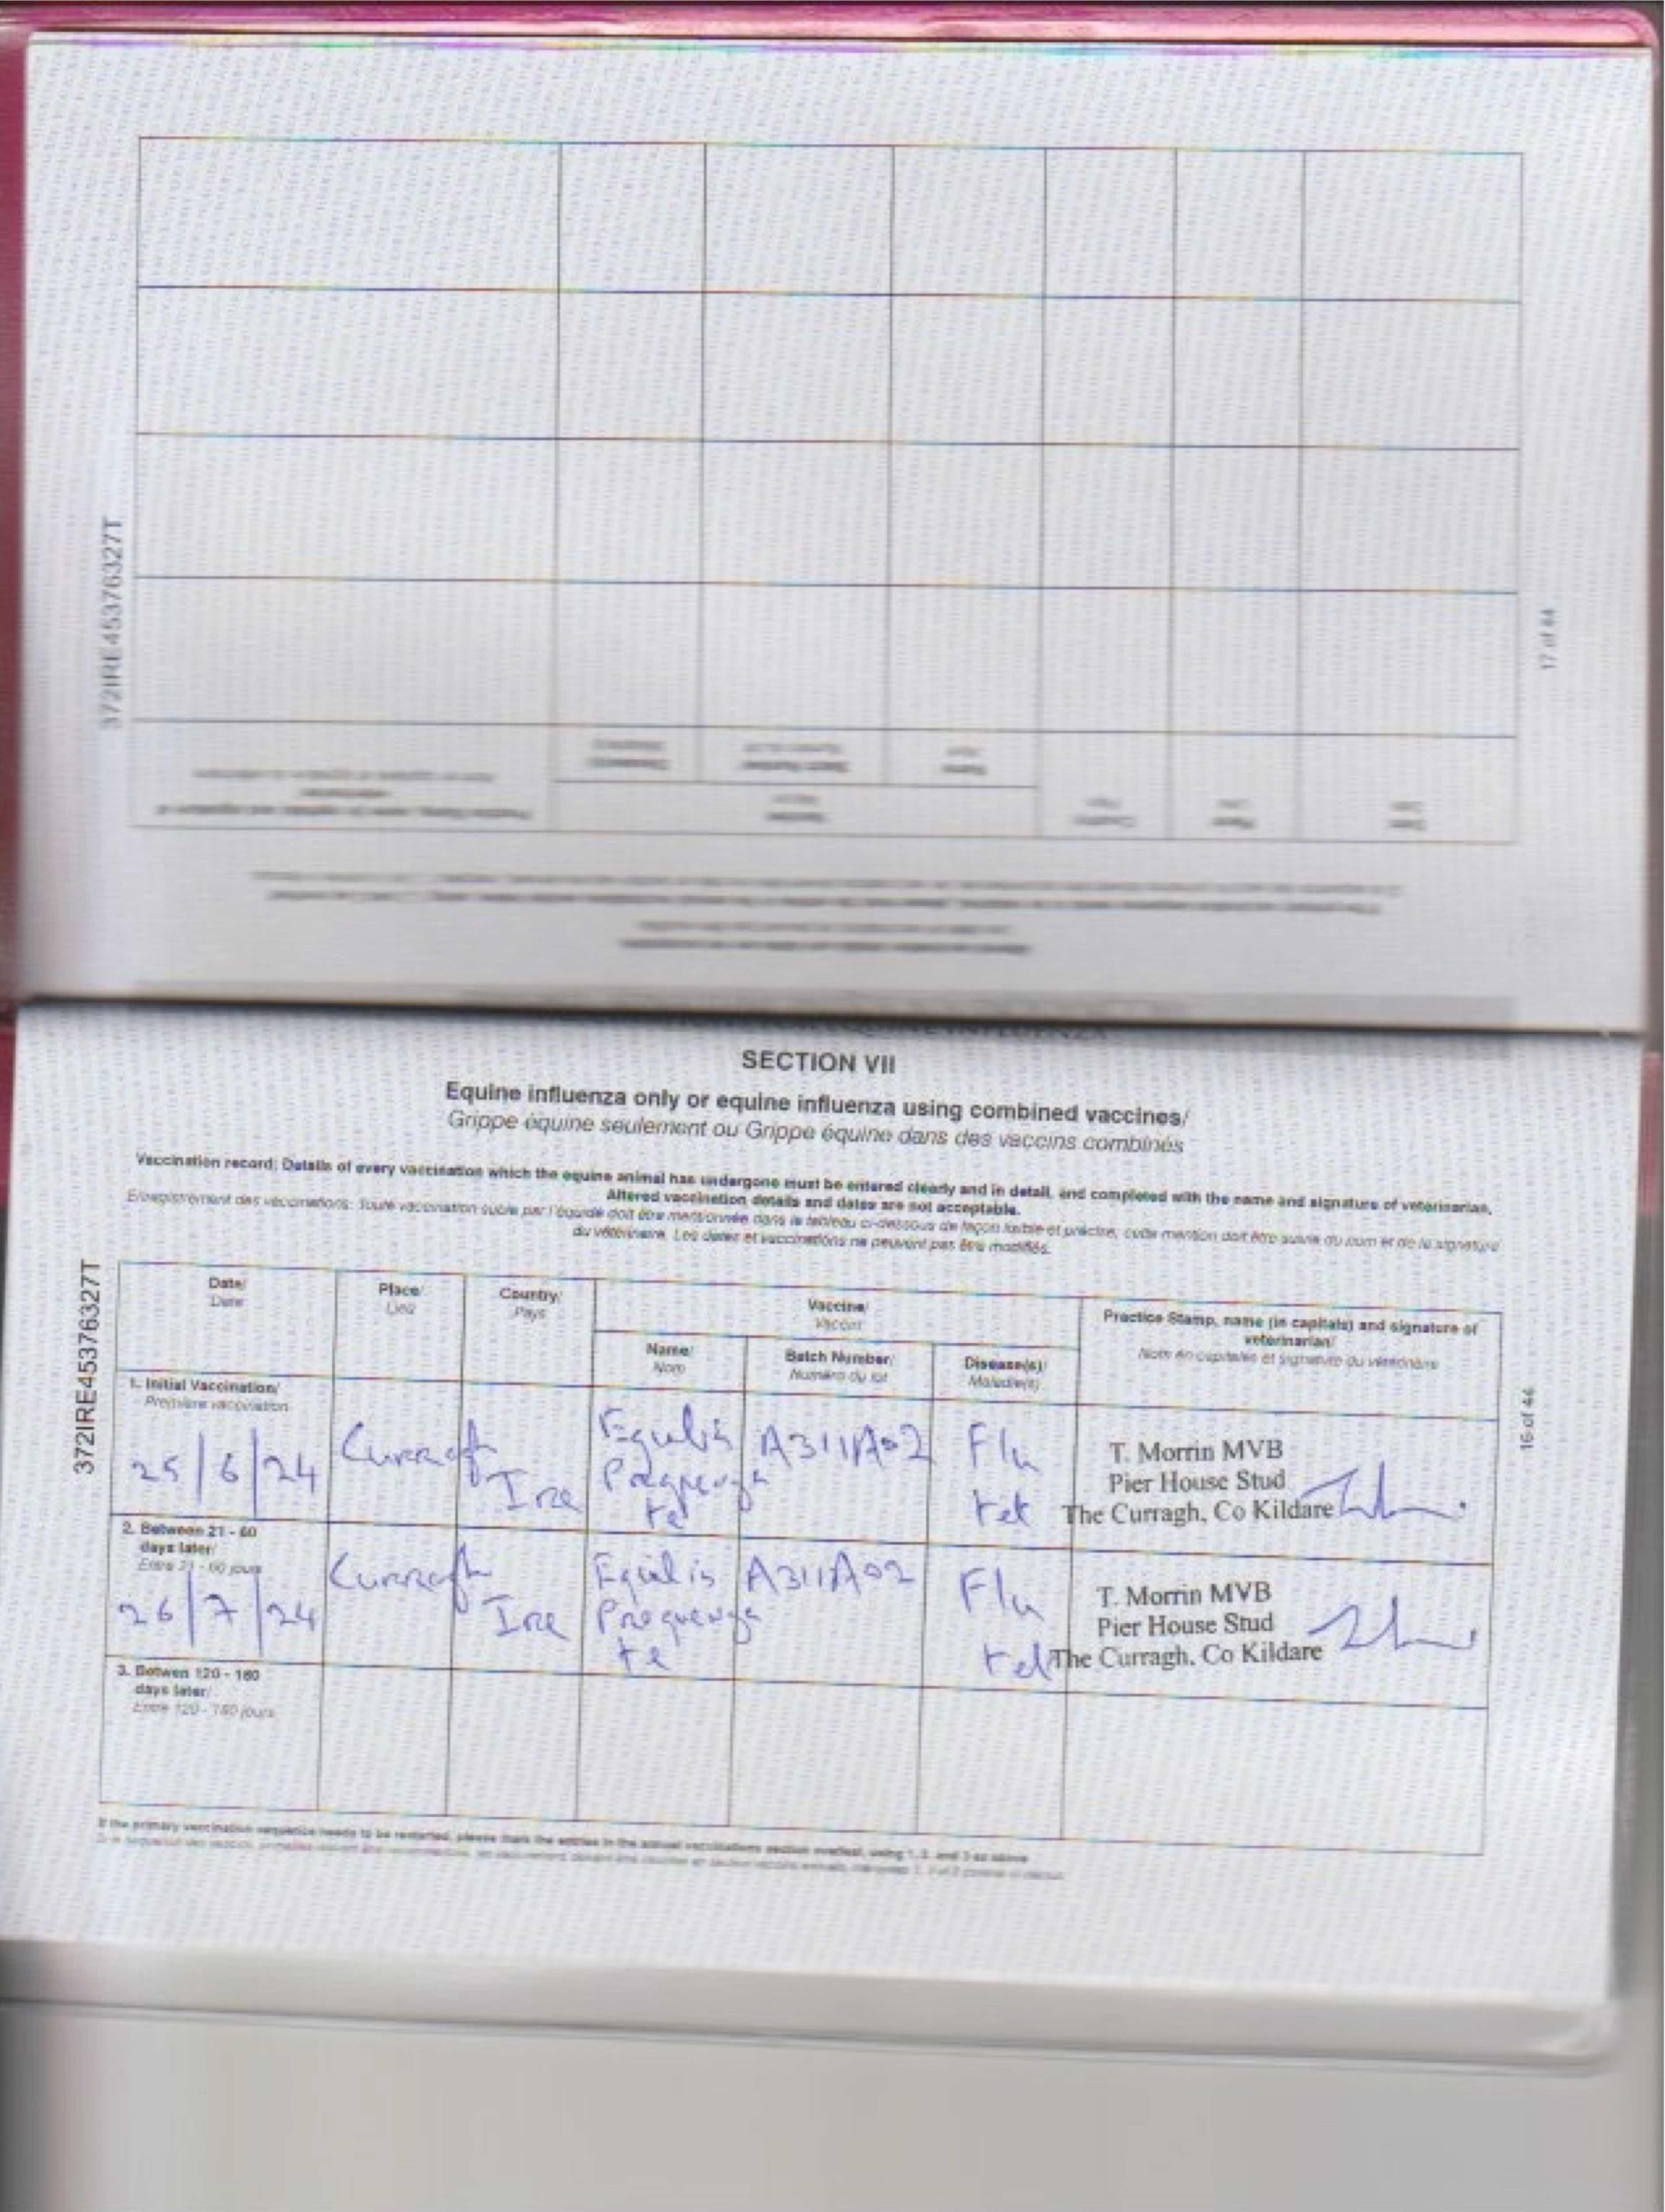 372IRE45376327T
17 of 44
SECTION VII
Equine influenza only or equine influenza using combined vaccines/
Grippe équine seulement ou Grippe équine dans des vaccins combinés
Vaccination record: Details of every vaccination which the equine animal has undergone must be entered clearly and in detail, and completed with the name and signature of veterinarian.
Altered vaccination details and dates are not acceptable.
Enregistrement des vaccinations: Toute vaccination subie par l'équidé doit être mentionnée dans le tableau ci-dessous de façon lisible et précise, cette mention doit être suivie du nom et de la signature
du vétérinaire. Les dates et vaccinations ne peuvent pas être modifiés.
372IRE45376327T
16 of 44
Date/
Date
Place/
Lieu
Country/
Pays
Vaccine/
Vaccin
Name/
Nom
Batch Number/
Numéro du lot
Disease(s)/
Maladie(s)
Practice Stamp, name (in capitals) and signature of
veterinarian/
Nom en capitales et signature du vétérinaire
1. Initial Vaccination/
Première vaccination
25/6/24
Curragh
Ire
Equilis
Prequenza
te
A311A02
Flu
tet
T. Morrin MVB
Pier House Stud
The Curragh, Co Kildare
2. Between 21 - 60
days later/
Entre 21 - 60 jours
26/7/24
Curragh
Ire
Equilis
Prequenza
te
A311A02
Flu
tet
T. Morrin MVB
Pier House Stud
The Curragh, Co Kildare
3. Betwen 120 - 180
days later/
Entre 120 - 180 jours
If the primary vaccination sequence needs to be restarted, please mark the entries in the annual vaccinations section overleaf, using 1, 2, and 3 as above